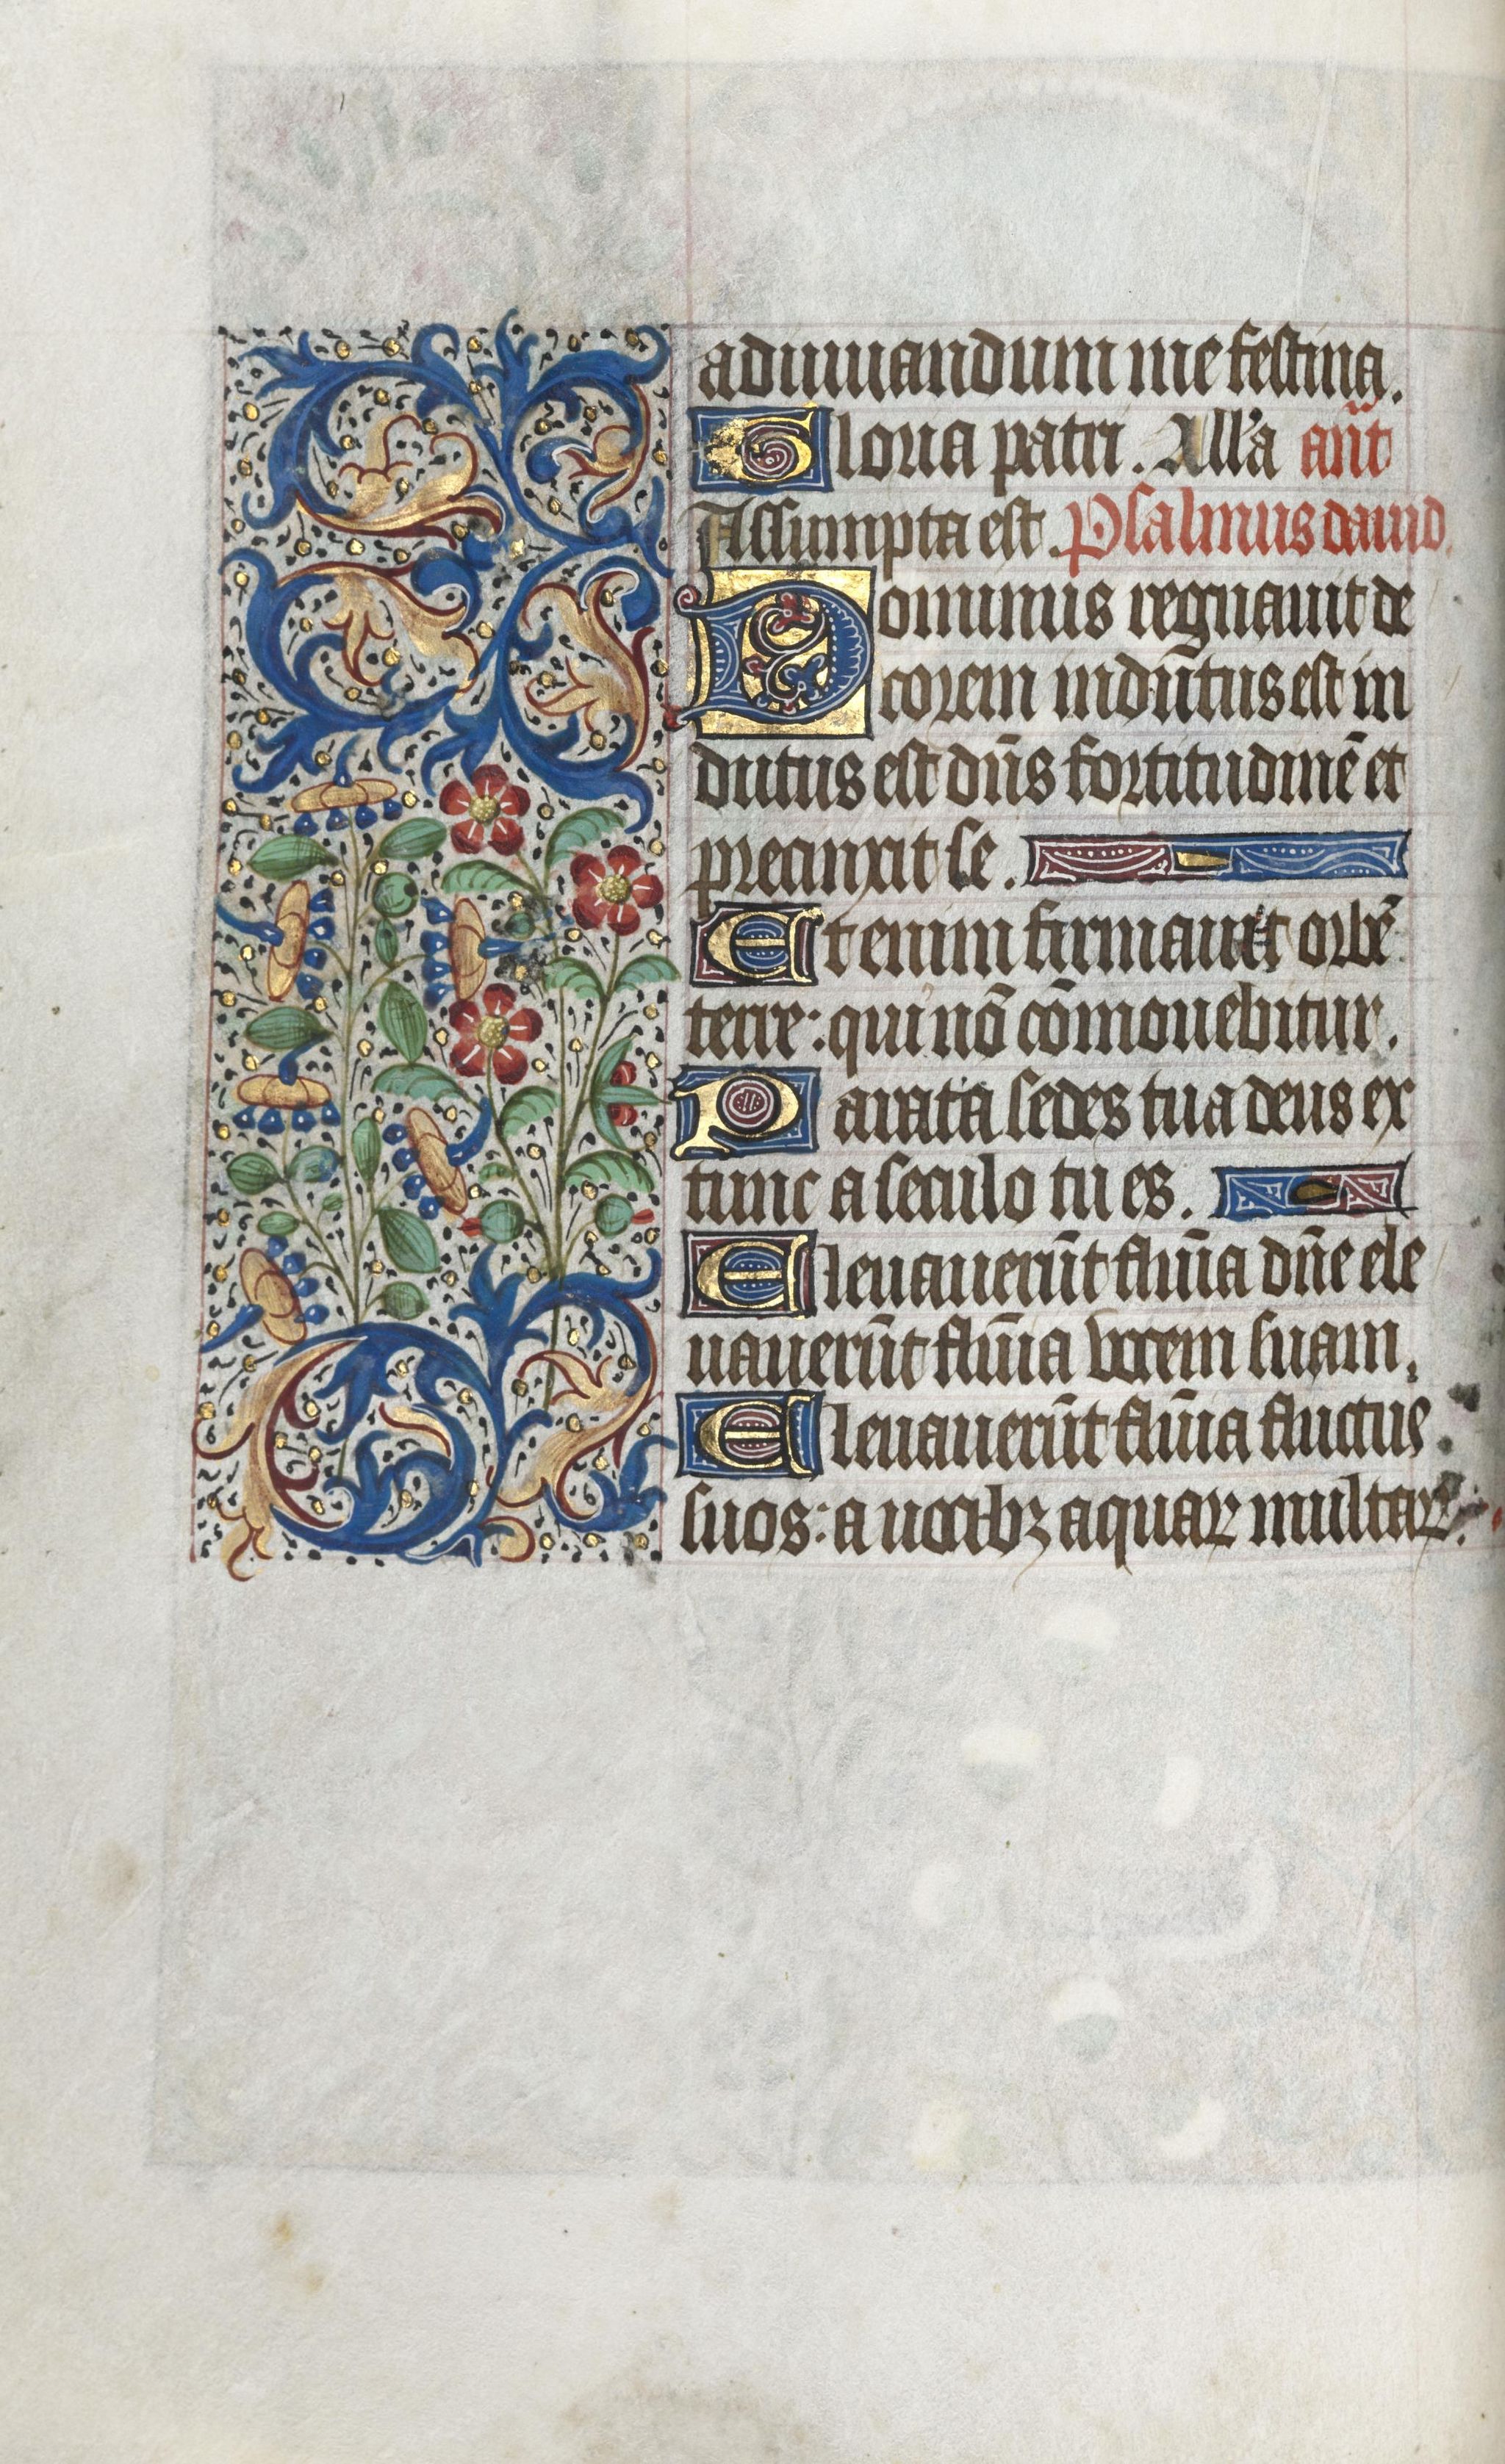 adiuuandum me festina.
Gloria patri. All'a añt
Assumpta est. Psalmus dauid.
Dominus regnauit de
corem indūtus est in
dutus est dñs fortitudinē et
precinxit se.
Etenim firmauit orbē
terre: qui nō cōmouebitur.
Parata sedes tua deus ex
tunc a seculo tu es.
Eleuauerūt flūīa dñe ele
uauerūt flūīa vocem suam.
Eleuauerūt flūīa fluctus
suos: a uocibꝫ aquaꝝ multaꝝ.